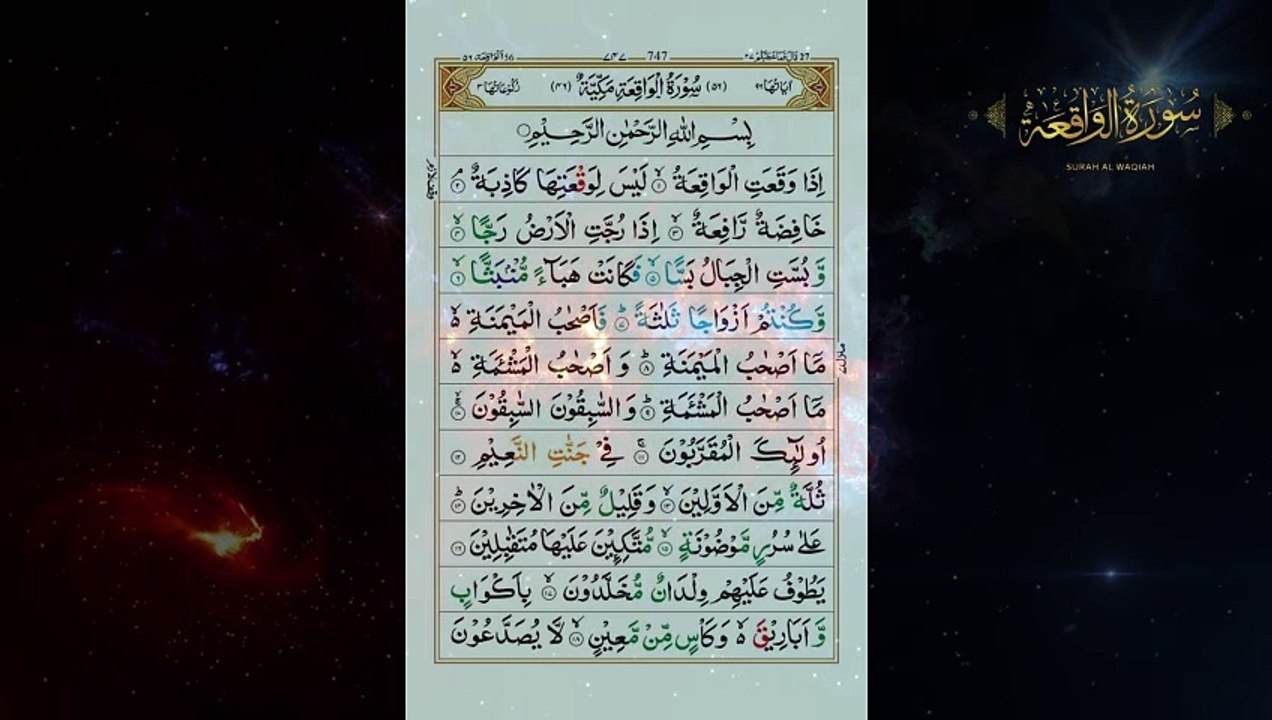 747 ۷۴۷
اٰيَاتُهَا ۹۶ (۵۶) سُوْرَةُ الْوَاقِعَةِ مَكِّيَّةٌ (۴۶) رُكُوْعَاتُهَا ۳
بِسْمِ اللّٰهِ الرَّحْمٰنِ الرَّحِيْمِ
اِذَا وَقَعَتِ الْوَاقِعَةُ ۙ‏﴿۱﴾ لَيْسَ لِوَقْعَتِهَا كَاذِبَةٌ ۘ‏﴿۲﴾
خَافِضَةٌ رَّافِعَةٌ ۙ‏﴿۳﴾ اِذَا رُجَّتِ الْاَرْضُ رَجًّا ۙ‏﴿۴﴾
وَّ بُسَّتِ الْجِبَالُ بَسًّا ۙ‏﴿۵﴾ فَكَانَتْ هَبَآءً مُّنْۢبَثًّا ۙ‏﴿۶﴾
وَّ كُنْتُمْ اَزْوَاجًا ثَلٰثَةً ؕ‏﴿۷﴾ فَاَصْحٰبُ الْمَيْمَنَةِ ۙ
مَاۤ اَصْحٰبُ الْمَيْمَنَةِ ؕ‏﴿۸﴾ وَ اَصْحٰبُ الْمَشْـَٔمَةِ ۙ
مَاۤ اَصْحٰبُ الْمَشْـَٔمَةِ ؕ‏﴿۹﴾ وَ السّٰبِقُوْنَ السّٰبِقُوْنَ ۚۙ‏﴿۱۰﴾
اُولٰٓئِكَ الْمُقَرَّبُوْنَ ۚ‏﴿۱۱﴾ فِيْ جَنّٰتِ النَّعِيْمِ ‏﴿۱۲﴾
ثُلَّةٌ مِّنَ الْاَوَّلِيْنَ ۙ‏﴿۱۳﴾ وَ قَلِيْلٌ مِّنَ الْاٰخِرِيْنَ ؕ‏﴿۱۴﴾
عَلٰى سُرُرٍ مَّوْضُوْنَةٍ ۙ‏﴿۱۵﴾ مُّتَّكِـِٕيْنَ عَلَيْهَا مُتَقٰبِلِيْنَ ‏﴿۱۶﴾
يَطُوْفُ عَلَيْهِمْ وِلْدَانٌ مُّخَلَّدُوْنَ ۙ‏﴿۱۷﴾ بِاَكْوَابٍ
وَّ اَبَارِيْقَ ۙ وَ كَاْسٍ مِّنْ مَّعِيْنٍ ۙ‏﴿۱۸﴾ لَّا يُصَدَّعُوْنَ
سُورَةُ الْوَاقِعَة
SURAH AL WAQIAH